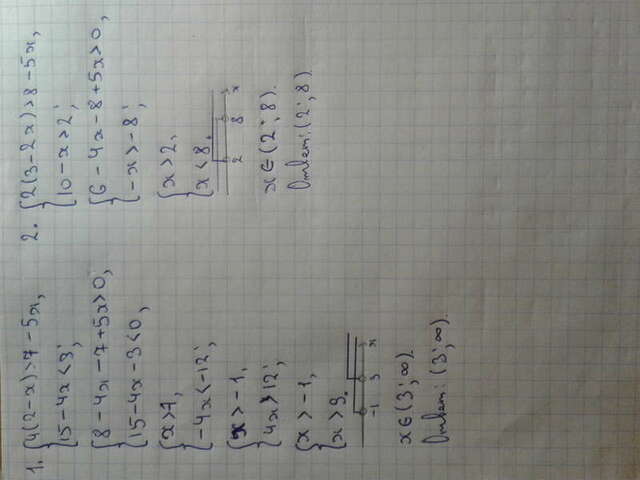 1. {4(2-x)>7-5x,
{15-4x<3;
{8-4x-7+5x>0,
{15-4x-3<0,
{x>7,
{-4x<-12;
{x>-1,
{4x>12;
{x>-1,
{x>9.
-1 3 x
x∈(3;∞).
Ответ: (3;∞).
2. {2(3-2x)>8-5x,
{10-x>2;
{6-4x-8+5x>0,
{-x>-8;
{x>2,
{x<8.
2 8 x
x∈(2;8).
Ответ: (2;8)